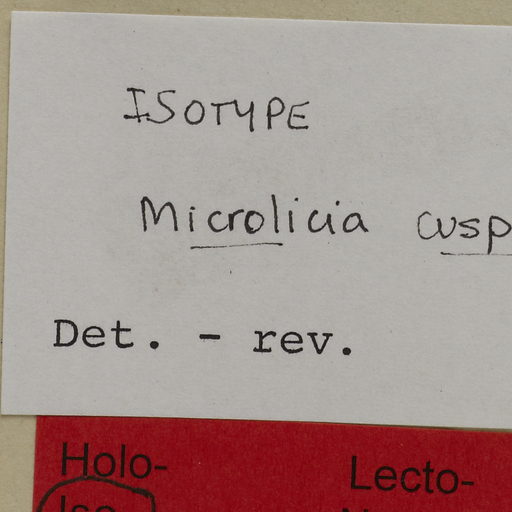 ISOTYPE
Microlicia cusp
Det. - rev.
Holo- Lecto-
Iso-